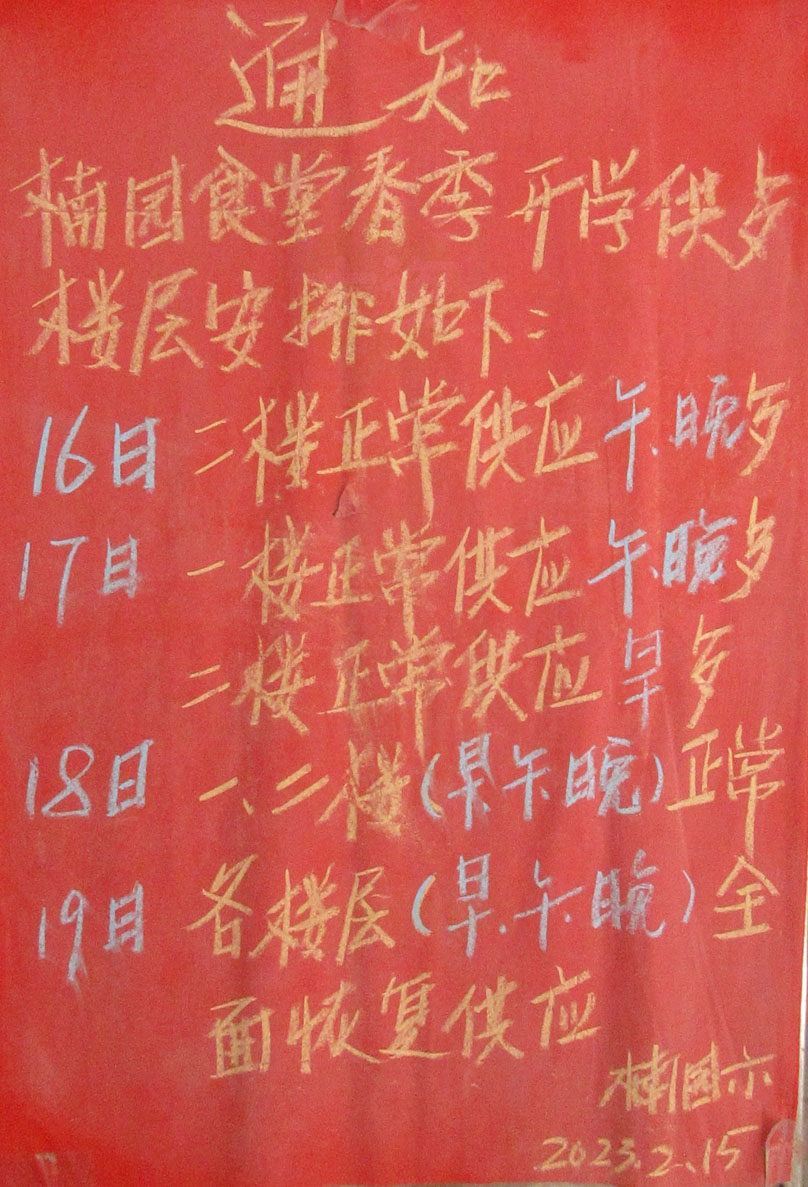 通知
楠园食堂春季开学供歺
楼层安排如下:
16日 二楼正常供应午、晚歺
17日 一楼正常供应午、晚歺
二楼正常供应早歺
18日 一、二楼(早、午、晚)正常
19日 各楼层(早、午、晚)全
面恢复供应
楠园示
2023.2.15